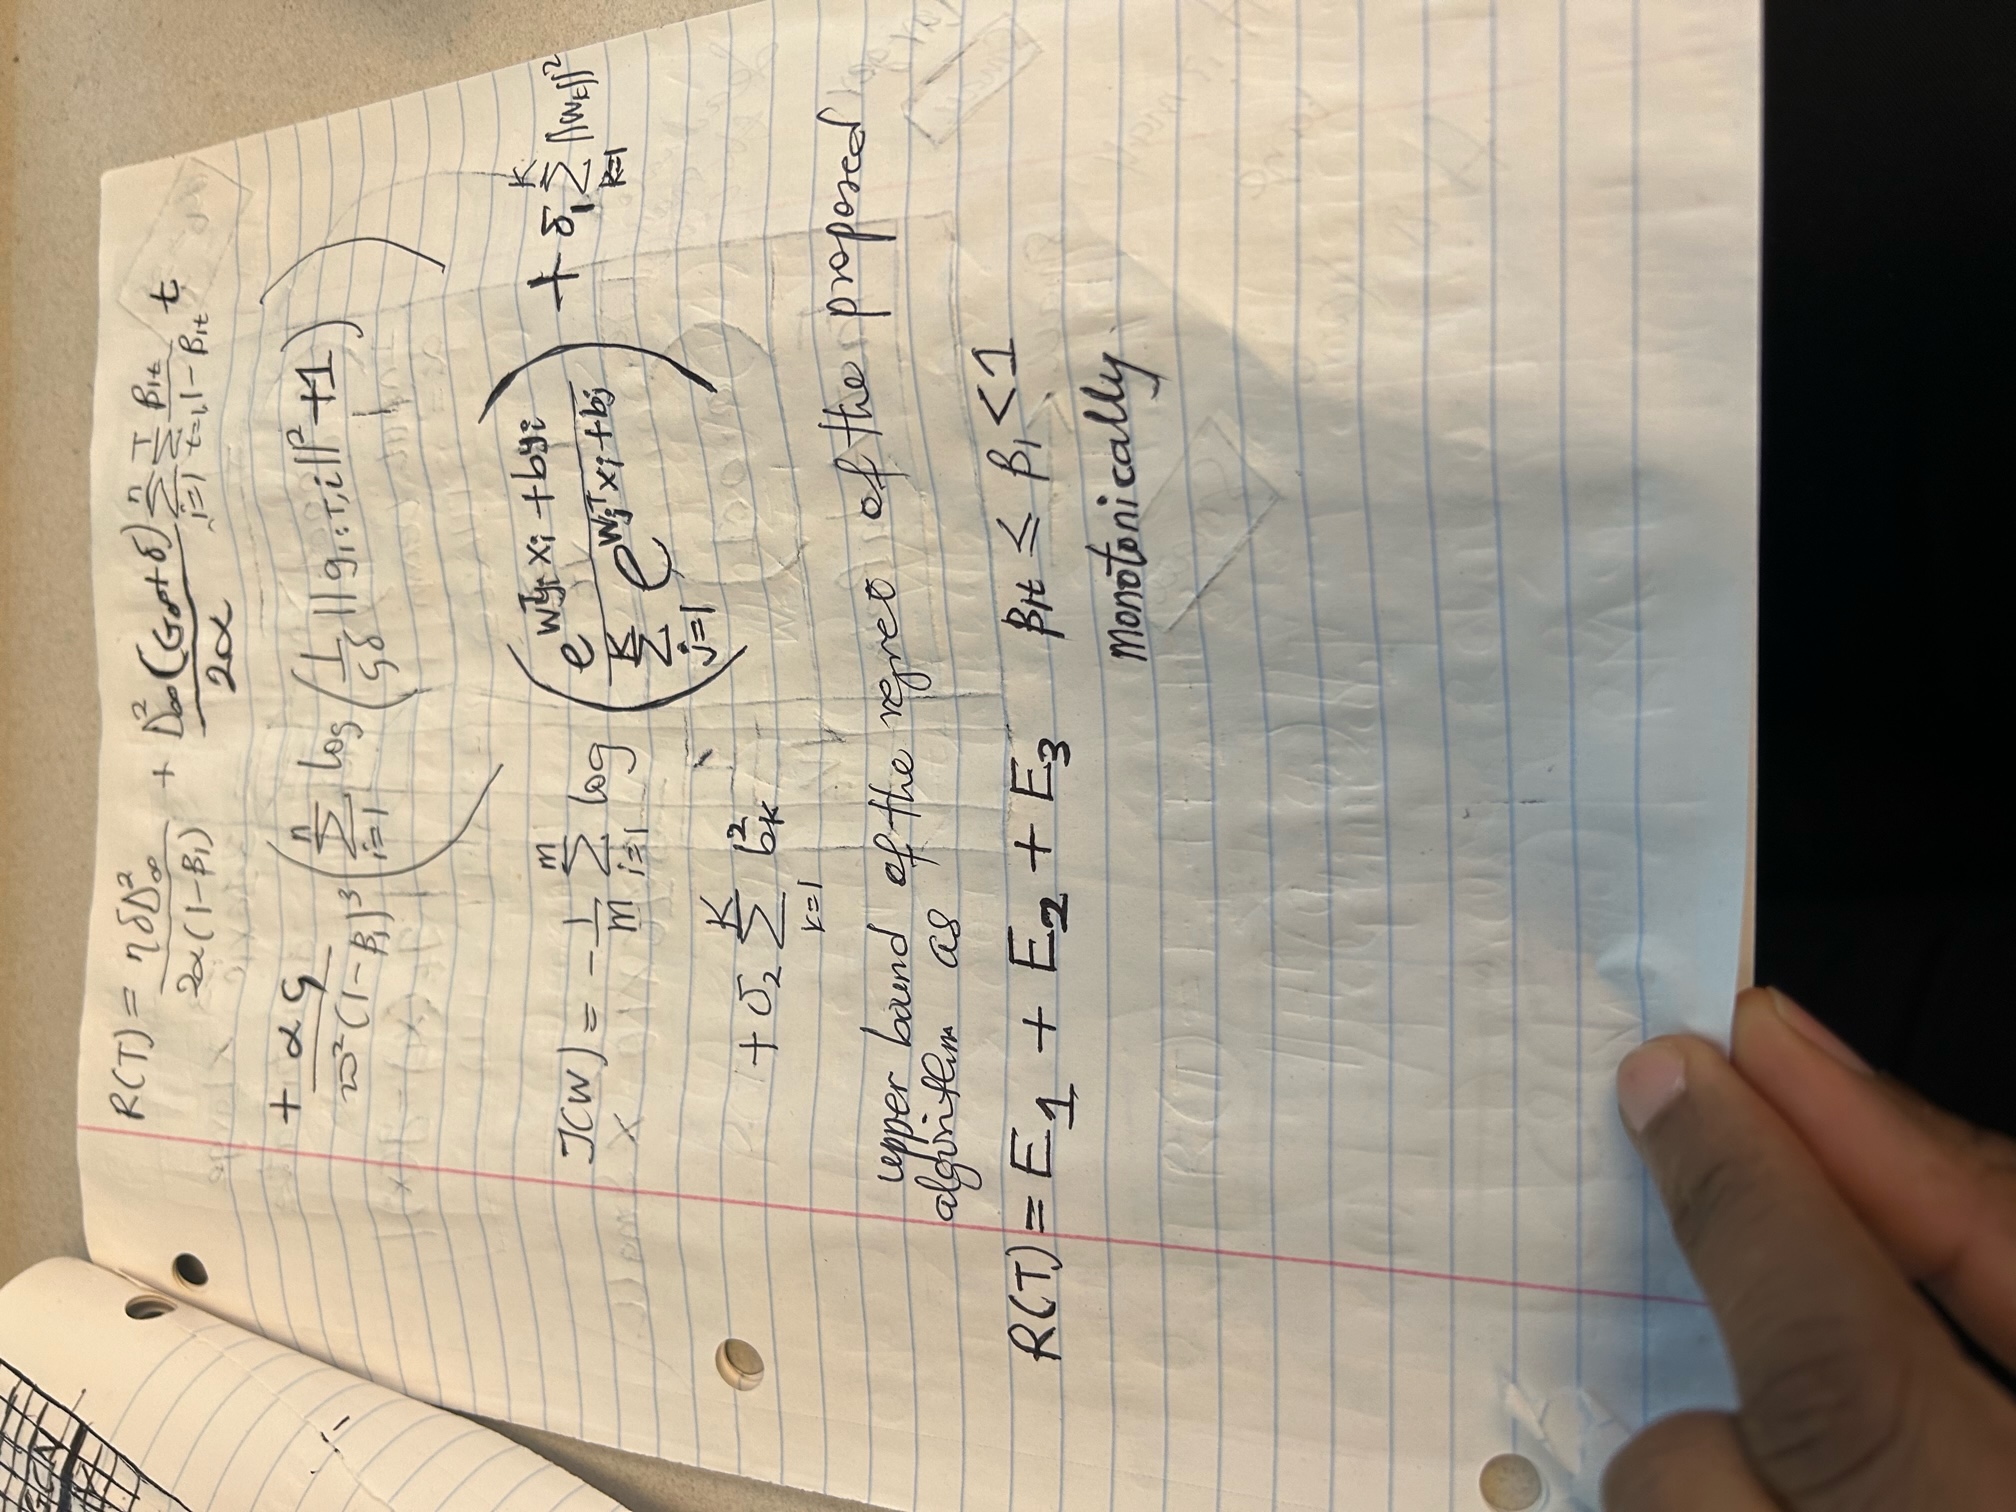 GCN
R(T) = ηδD²∞ / 2α(1-β₁) + D²∞(G∞+δ) / 2α ∑ⁿᵢ₌₁ ∑ᵀₜ₌₁ β₁ₜ / 1-β₁ₜ t
+ ας / w²(1-β₁)³ (∑ⁿᵢ₌₁ log(1/ςδ ||g₁:T,i||² +1))
J(W) = -1/m ∑ᵐᵢ₌₁ log (e^(Wᵀyᵢ xᵢ + byᵢ) / ∑ᴷⱼ₌₁ e^(Wⱼᵀxᵢ+bⱼ)) + δ₁ ∑ᴷₖ₌₁ ||Wₖ||²
+ δ₂ ∑ᴷₖ₌₁ b²ₖ
upper bound of the regret of the proposed
algorithm as
R(T) = E₁ + E₂ + E₃ β₁ₜ ≤ β₁ < 1
monotonically